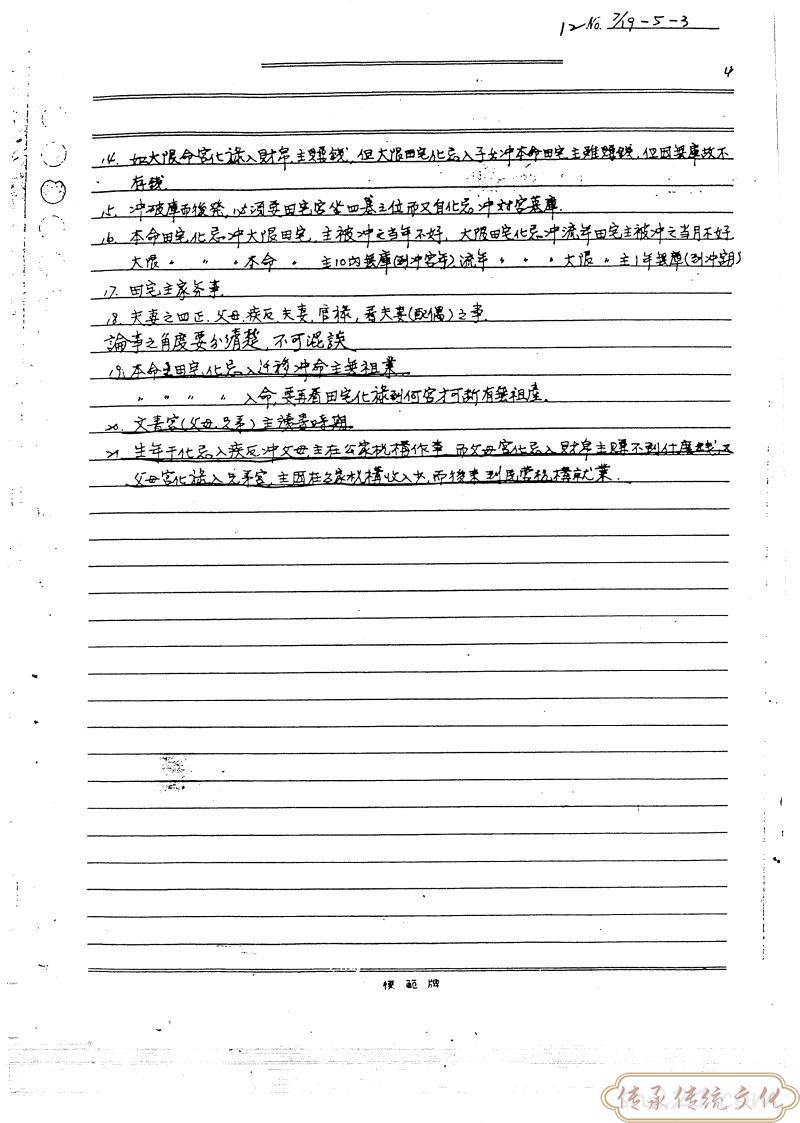 12 No. 7/19-5-3
4
14. 如大限命宮化祿入財帛,主賺錢,但大限田宅化忌入子女冲本命田宅主雖賺錢,但因無庫故不
存錢.
15. 冲破庫而後発,必須要田宅宮坐四墓之位而又自化忌冲对宮墓庫.
16. 本命田宅化忌冲大限田宅,主被冲之当年不好,大限田宅化忌冲流年田宅主被冲之当月不好
大限 〃 〃 〃本命 〃 主10內無庫(到冲宮年)流年 〃 〃 〃 大限 〃主1年無庫(到冲宮月)
17. 田宅主家务事.
18. 夫妻之四正.父母.疾厄夫妻,官祿,看夫妻(配偶)之事.
論事之角度要分清楚,不可混誤
19. 本命田宅化忌入迁移冲命主無祖業
〃 〃 〃 〃 入命,要再看田宅化祿到何宮才可断有無祖產.
20. 文書宮(父母.兄弟)主讀書時期.
21. 生年干化忌入疾厄冲父母,主在公家机構作事.而父母宮化忌入財帛主賺不到什麼錢,又
父母宮化祿入兄弟宮,主因在公家机構收入少,而後来到民营机構就業.
模範牌
传承传统文化